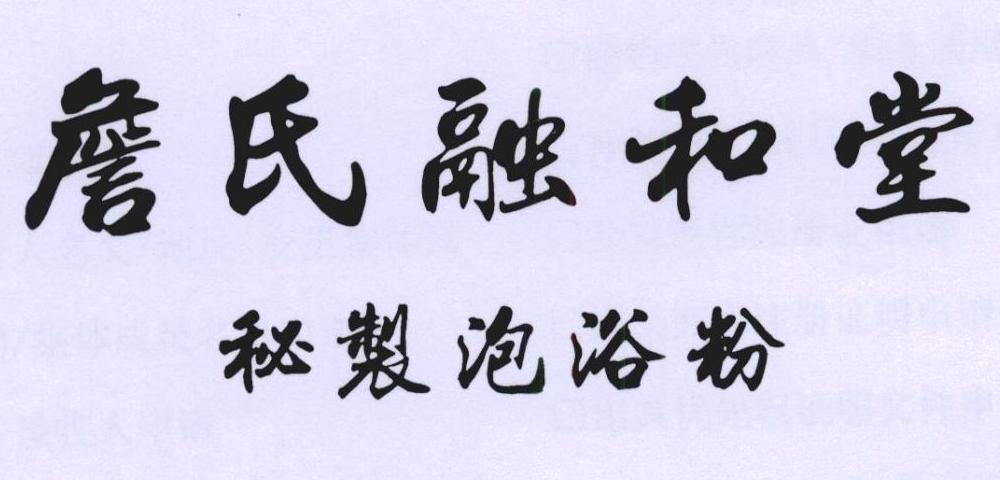 詹氏融和堂
秘製泡浴粉